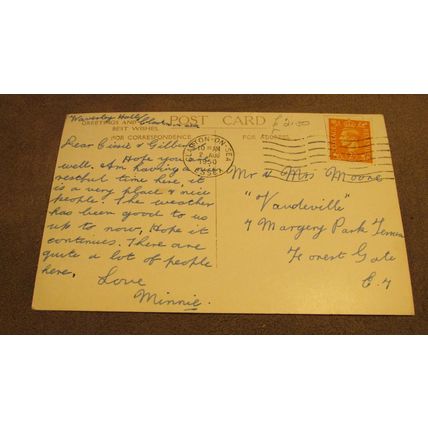 Waverley Hall Clacton on sea
POST CARD
£2.00
GREETINGS AND
BEST WISHES
FOR CORRESPONDENCE
FOR ADDRESS
CLACTON-ON-SEA
10 AM
2 AUG
1950
POSTAGE
Dear Cissie & Gilbert
Hope you
well. Am having a
restful time here, it
is a very place & nice
people. The weather
has been good to us
up to now, Hope it
continues. There are
quite a lot of people
here.
Love
Minnie.
Mr & Mrs Moore
"Vaudeville"
7 Margery Park Terrace
Forest Gate
E.7